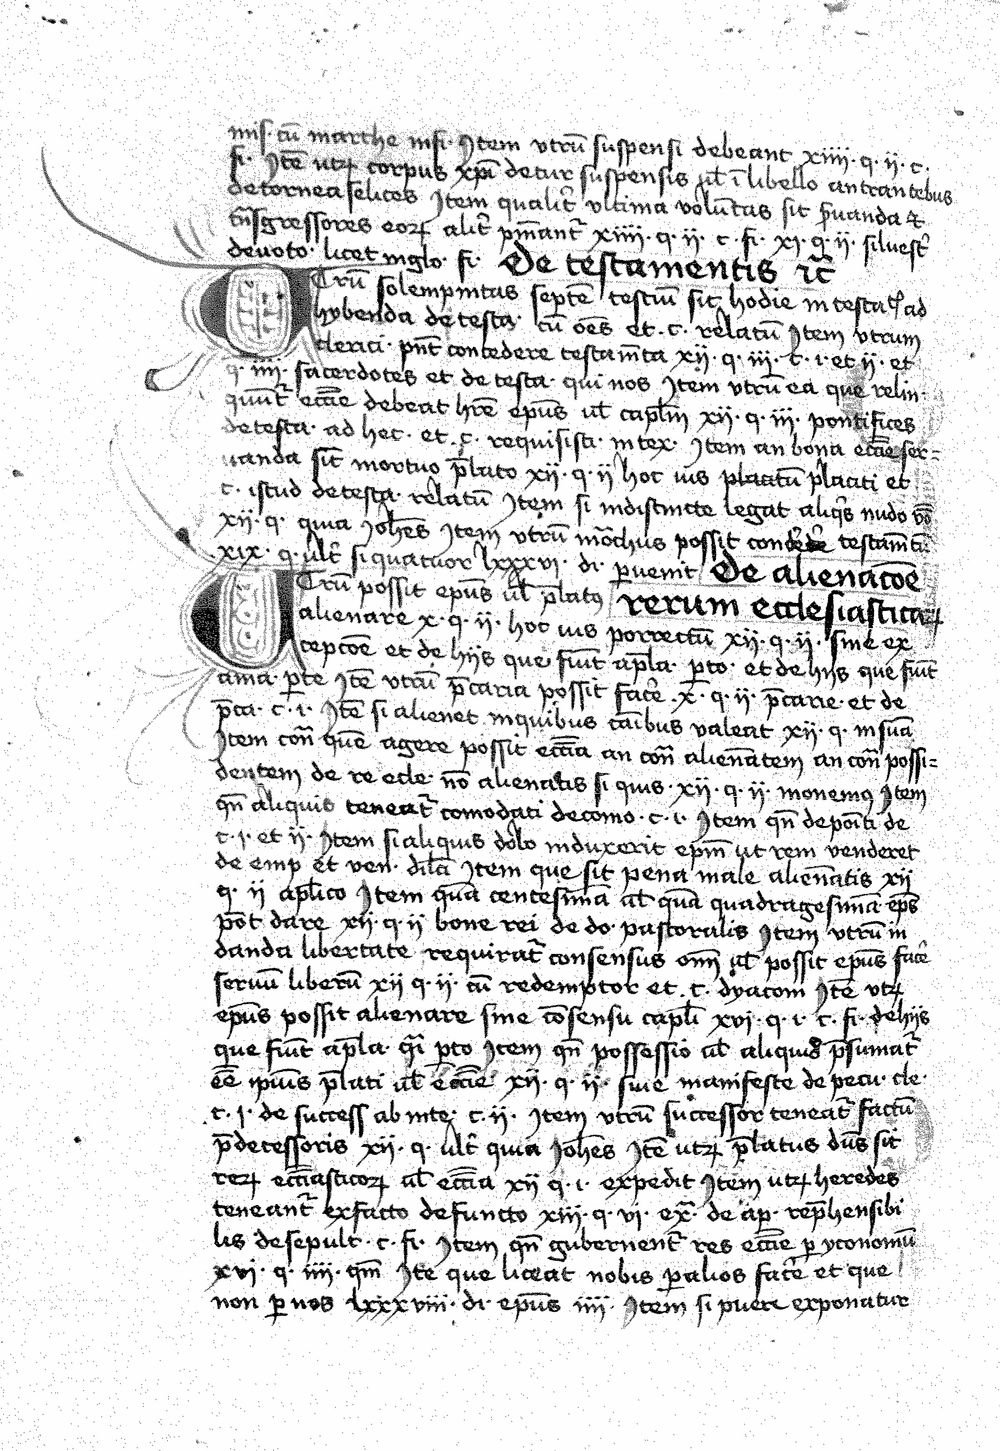 mis· cū marthe insi· Item vtrū suspensi debeant xiiii· q· ii· c·
fi· Itē utꝝ corpus xp̄i detur suspensis ul̄ ī libello an trantebus
de tornea felices Item qualit̄ ultima volūtas sit p̄uanda et
tn̄sgressores eoꝝ alit̄ pm̄ant̄ xiiii· q· ii· c· fi· xi· q· ii· siluest̄
deuoto· licet in glo· fi· De testamentis ⁊c̄
Utrū solempnitas septē testiū sit hodie in testat̄ ad
hybenda de testa· cū oēs et· c· relatū Item vtrum
clerici· pn̄t concedere testam̄ta xii· q· iii· c· i· et ii· et
q· iiii· sacerdotes et de testa· qui nos Item vtrū ea que relin·
quūt̄ ecc̄ie debeat hr̄e ep̄us ul̄ capl̄m xii· q· iii· pontifices
de testa· ad hec· et· c· requisisti· in tex· Item an bona ecc̄ie ser=
uanda sīt mortuo p̄lato xii· q· ii hoc ius placitū placiti et
c· istud de testa· relatū Item si indistincte legat aliq̄s nudo
xii· q· quia Ioh̄es Item vtrū mōchus possit testam̄tū
xix· q· ult̄ si quatuor lxxxvi· di· peruenit De alienacōe
Utrū possit ep̄us ul̄ p̄latꝯ rerum ecclesiasticaꝝ
alienare x· q· ii· hoc ius porrectū xii· q· ii· sine ex
cepcōe et de hijs que fiūt a p̄la· p̄to· et de hijs que fiūt
ama· p̄te Itē vtrū p̄caria possit fac̄e x· q· ii· p̄carie· et de
p̄ca· c· i· Itē si alienet in quibus cāibus valeat xii· q· in suā
Item con̄ quē agere possit ecc̄ia an con̄ alienātem an con̄ possi=
dentem de re ecle· nō alienatis si quis· xii· q· ii· monemꝯ Item
qn̄ aliquis teneat̄ comodati de como· c· i· Item qn̄ depoīti de
c· i· et ii· Item si aliquis dolo induxerit ep̄m ut rem venderet
de emp et ven· dil̄ci Item que sit pena male alienātis xii
q· ii apl̄ico Item quā centesimā ul̄ quā quadragesimā ep̄s
pōt dare xii· q· ii bone rei de do· pastoralis Item vtrū in
danda libertate requirat̄ consensus om̄ ul̄ possit ep̄us fac̄e
seruū liberū xii q· ii· cū redemptor et· c· dyaconi Itē vtꝝ
ep̄us possit alienare sine cōsensu capl̄i xvi· q· i· c· fi· de hijs
que fiūt a p̄la· p̄to Item qn̄ possessio ul̄ aliquid p̄sumat̄
eē ip̄ius p̄lati ul̄ ecc̄ie xii· q· ii· siue manifeste de pecu· cle·
c· i· de success ab inte· c· ii· Item vtrū successor teneat̄ factū
p̄decessoris xii· q· ult̄ quia Ioh̄es Itē utꝝ p̄latus dn̄s sit
reꝝ ecc̄iasticoꝝ ul̄ ecc̄ia xii q· i· expedit Item utꝝ heredes
teneant̄ ex facto defuncto xiii· q· vi· ex̄· de ap· rep̄hensibi
lis de sepult· c· fi· Item qn̄ gubernent̄ res ecc̄ie p̱ yconomū
xvi· q· iiii· qm̄ Itē que liceat nobis p̱ alios fac̄e et que
non p̱ nos lxxxviii· di· ep̄us iiii· Item si pueri exponatur